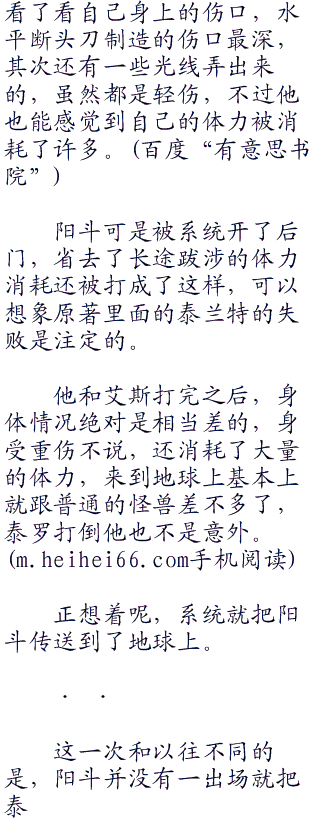 看了看自己身上的伤口，水
平断头刀制造的伤口最深，
其次还有一些光线弄出来
的，虽然都是轻伤，不过他
也能感觉到自己的体力被消
耗了许多。(百度“有意思书
院”)
阳斗可是被系统开了后
门，省去了长途跋涉的体力
消耗还被打成了这样，可以
想象原著里面的泰兰特的失
败是注定的。
他和艾斯打完之后，身
体情况绝对是相当差的，身
受重伤不说，还消耗了大量
的体力，来到地球上基本上
就跟普通的怪兽差不多了，
泰罗打倒他也不是意外。
(m.heihei66.com手机阅读)
正想着呢，系统就把阳
斗传送到了地球上。
· ·
这一次和以往不同的
是，阳斗并没有一出场就把
泰